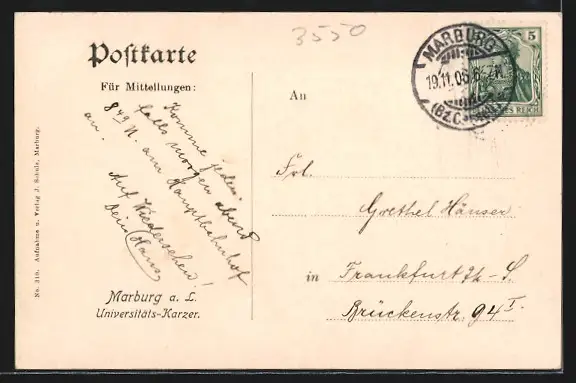 3550
Postkarte
MARBURG
19.11.06.6-7N.
(BZ.CASSEL)
5
DEUTSCHES REICH
Für Mitteilungen:
An
Komme jeden
falls morgen abend
8 49 N. am Hauptbahnhof
an.
Auf Wiedersehen!
Dein Hans.
Frl.
Grethel Häuser
in Frankfurt a/M.-S.
Brückenstr. 94 I.
Marburg a. L.
Universitäts-Karzer.
No. 319. Aufnahme u. Verlag J. Schule, Marburg.